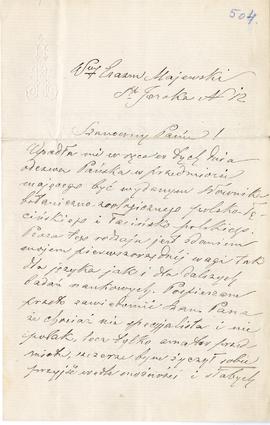 504.
Wny Erazm Majewski
Sto Jerska № 12
Szanowny Panie!
Wpadła mi w ręce w tych dniach
odezwa Pańska w przedmiocie
mającego być wydanym słownika
botaniczno-zoologicznego polsko-ła-
cińskiego i łacińsko polskiego.
Praca tego rodzaju jest zdaniem
mojem pierwszorzędnej wagi tak
dla języka jak i dla dalszych
badań naukowych. Pospieszam
przeto zawiadomić Szan. Pana
że chociaż nie specjalista i nie
polak, lecz tylko amator przed
miotu, szczerze bym życzył sobie
przyjść wedle możności i słabych